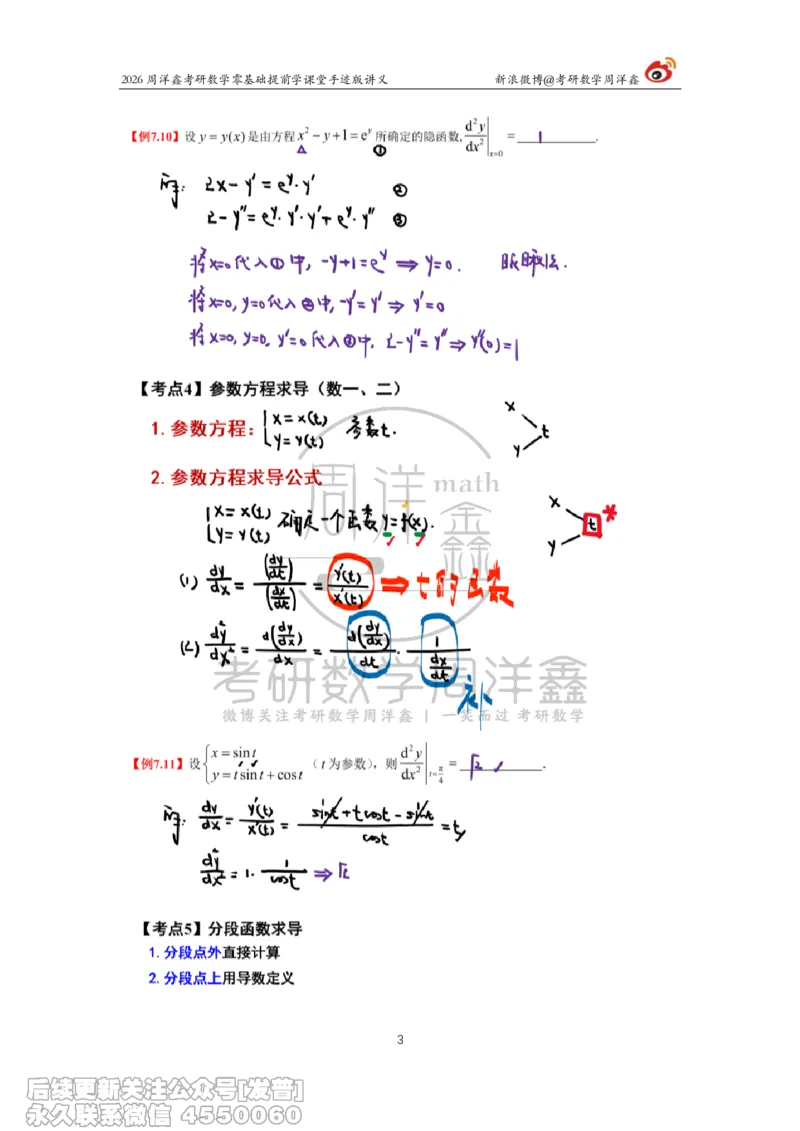 2026 周洋鑫考研数学零基础提前学课堂手迹版讲义 新浪微博@考研数学周洋鑫
【例7.10】设 y = y(x) 是由方程 x² − y + 1 = eʸ 所确定的隐函数, d²y/dx² |x=0 = 1 .
△ ①
解: 2x − y' = eʸ·y' ②
2 − y'' = eʸ·y'·y' + eʸ·y'' ③
将x=0代入①中, −y+1=eʸ ⇒ y=0. 眼瞅法.
将x=0, y=0代入②中, −y'=y' ⇒ y'=0
将x=0, y=0, y'=0代入③中, 2−y''=y'' ⇒ y''(0)=1
【考点4】参数方程求导（数一、二）
1. 参数方程: { x = x(t) y = y(t) 参数t.
x y t
2. 参数方程求导公式
{ x = x(t) y = y(t) 确定一个函数 y = f(x).
x y t *
(1) dy/dx = (dy/dt)/(dx/dt) = y'(t)/x'(t) ⇒ t的函数
(2) d²y/dx² = d(dy/dx)/dx = d(dy/dx)/dt · 1/(dx/dt)
补
周洋鑫 math
考研数学周洋鑫
微博关注考研数学周洋鑫 | 一笑而过 考研数学
【例7.11】设 { x = sin t y = t sin t + cos t （t 为参数），则 d²y/dx² |t=π/4 = √2 .
解: dy/dx = y'(t)/x'(t) = (sint + tcost − sint)/cost = t,
d²y/dx² = 1· 1/cost ⇒ √2
【考点5】分段函数求导
1. 分段点外直接计算
2. 分段点上用导数定义
3
后续更新关注公众号[发普]
永久联系微信 4550060